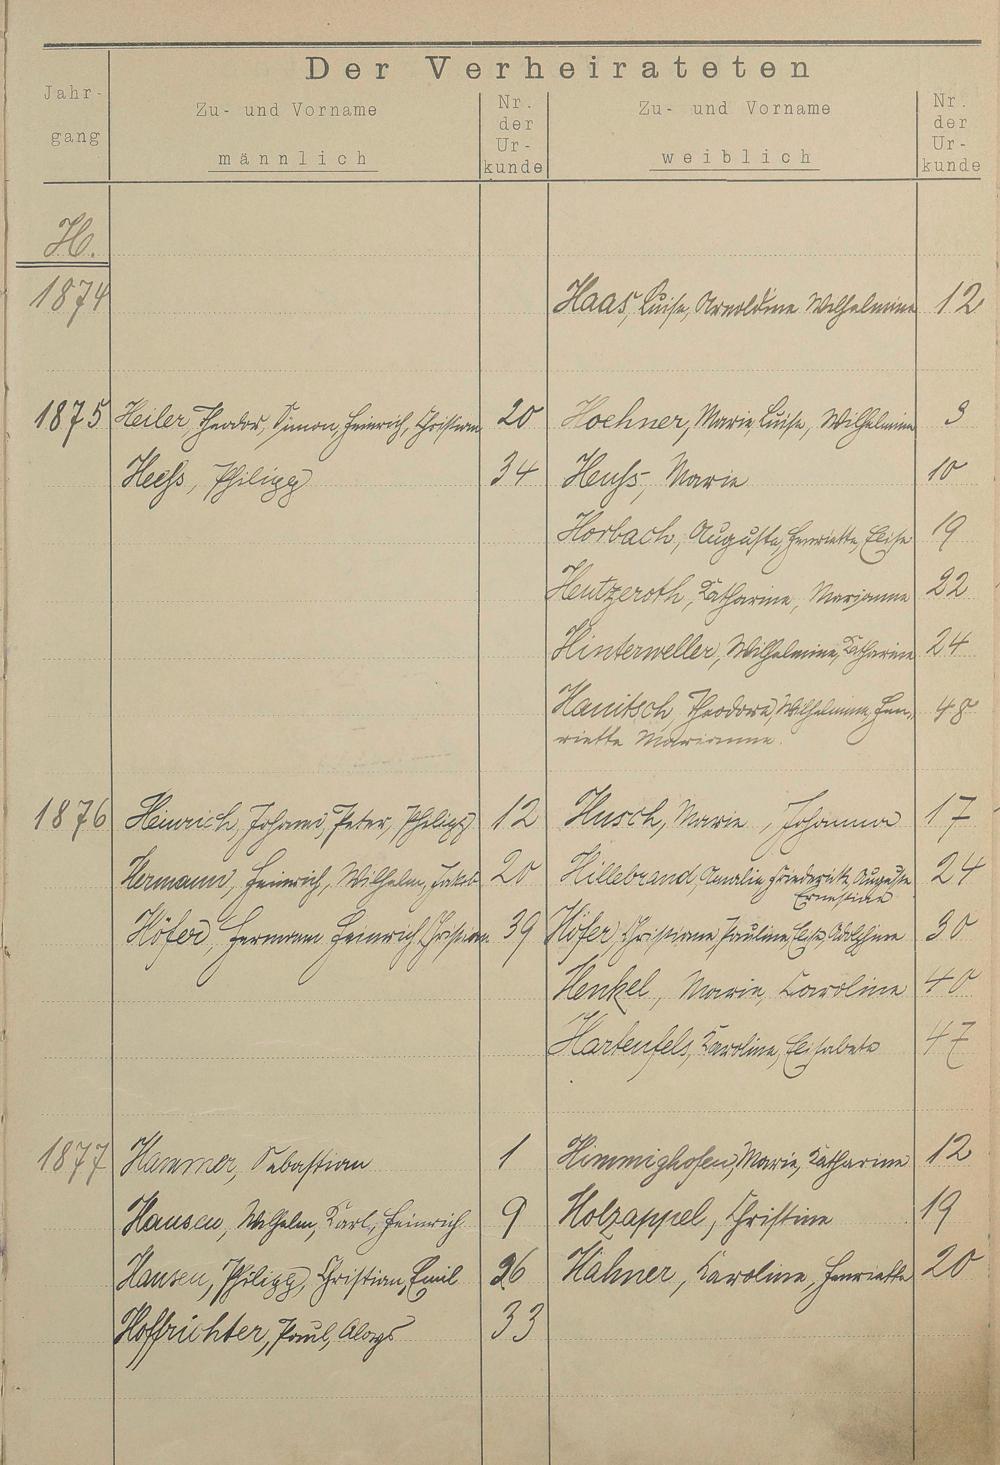 Der Verheirateten
Jahr-
gang
Zu- und Vorname
männlich
Nr.
der
Ur-
kunde
Zu- und Vorname
weiblich
Nr.
der
Ur-
kunde
H.
1874 Haas, Luise, Arnoldine Wilhelmine 12
1875 Heiler, Theodor, Simon, Heinrich, Christian 20 Hoehner, Marie, Luise, Wilhelmine 3
Heeß, Philipp 34 Heuß, Marie 10
Horbach, Auguste, Henriette, Elise 19
Heutzeroth, Katharine, Marianne 22
Hinterweller, Wilhelmine, Katharine 24
Hanitsch, Theodore, Wilhelmine, Hen- 48
riette Marianne.
1876 Heinrich, Johann, Peter, Philipp 12 Husch, Marie, Johanna 17
Hermann, Heinrich, Wilhelm, Jakob 20 Hillebrand, Amalie Friederike, Auguste 24
Ernestine
Höfer, Hermann Heinrich Christian 39 Höfer, Christiane, Pauline, Elise, Adolfine 30
Henkel, Marie, Caroline 40
Hartenfels, Karoline, Elisabeta 47
1877 Hammer, Sebastian 1 Himmighofen, Marie, Katharine 12
Hansen, Wilhelm, Karl, Heinrich 9 Holzappel, Christine 19
Hansen, Philipp, Christian, Emil 26 Hähner, Karoline, Henriette 20
Hoffrichter, Paul, Aloys 33